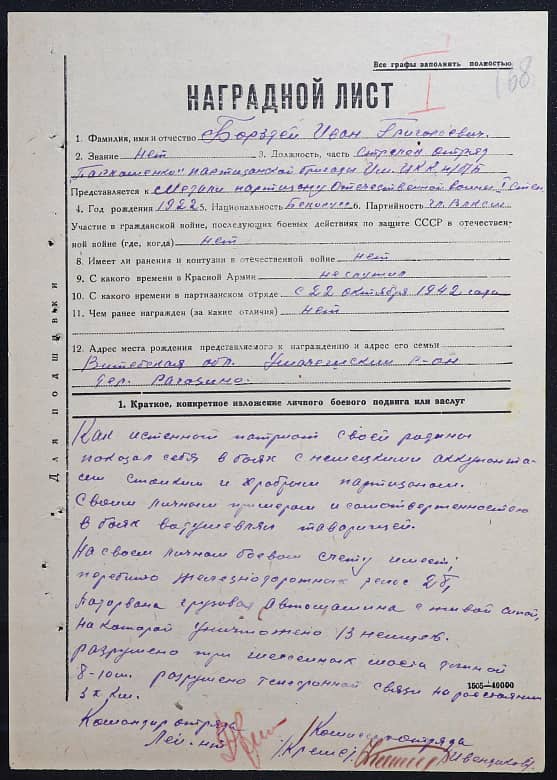 Все графы заполнить полностью
168
I
НАГРАДНОЙ ЛИСТ
1. Фамилия, имя и отчество Борздей Иван Григорьевич.
2. Звание нет 3. Должность, часть Стрелок отряд
партизанской бригады Им. ЦК КП/б/Б
Представляется к Медали партизану Отечественной войны I степ
4. Год рождения 1922 5. Национальность Белорус 6. Партийность Чл. ВЛКСМ
Участие в гражданской войне, последующих боевых действиях по защите СССР в отечествен-
ной войне (где, когда) нет
8. Имеет ли ранения и контузии в отечественной войне нет
9. С какого времени в Красной Армии неслужил
10. С какого времени в партизанском отряде с 22 октября 1942 года
11. Чем ранее награжден (за какие отличия) нет
12. Адрес места рождения представляемого к награждению и адрес его семьи
Витебская обл. Ушачский р-он
дер. Рагозино.
Для подшивки
1. Краткое, конкретное изложение личного боевого подвига или заслуг
Как истенный патриот своей родины
показал себя в боях с немецкими аккупанта-
ми стойким и храбрым партизаном.
Своим личным примером и самотверженностью
в боях вадушевлял таварищей.
На своем личном боевом счету имеет;
перебито железнодорожных рельс 26,
Падорвана грузовая автомашина с живой силой,
на которой уничтожено 13 немцев.
разрушено три шоссейных моста длиной
8-10 м. разрушено телефонной связи на расстоянии
3х км.
1505—40000
Командир отряда Комиссар отряда
Лей-нт